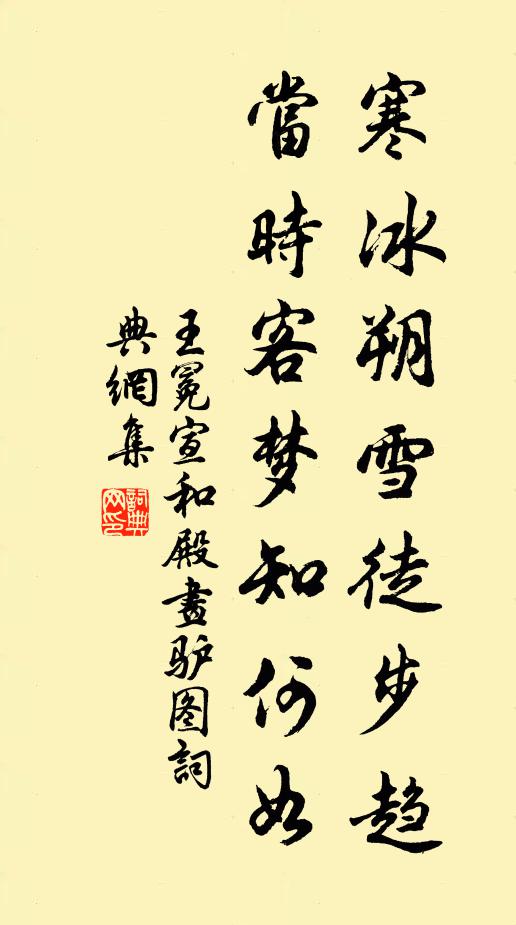 寒冰朔雪徒步趋
當時客梦知何如
王冕宣和殿畫驴图詞
典網集
詞典網印